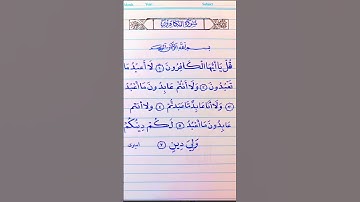 سورة الكافرون
بسم الله الرحمن الرحيم
قُلْ يَا أَيُّهَا الْكَافِرُونَ ① لَا أَعْبُدُ مَا
تَعْبُدُونَ ② وَلَا أَنْتُمْ عَابِدُونَ مَا أَعْبُدُ
③ وَلَا أَنَا عَابِدٌ مَّا عَبَدتُّمْ ④ وَلَا أَنتُمْ
عَابِدُونَ مَا أَعْبُدُ ⑤ لَكُمْ دِينُكُمْ
وَلِيَ دِينِ ⑥